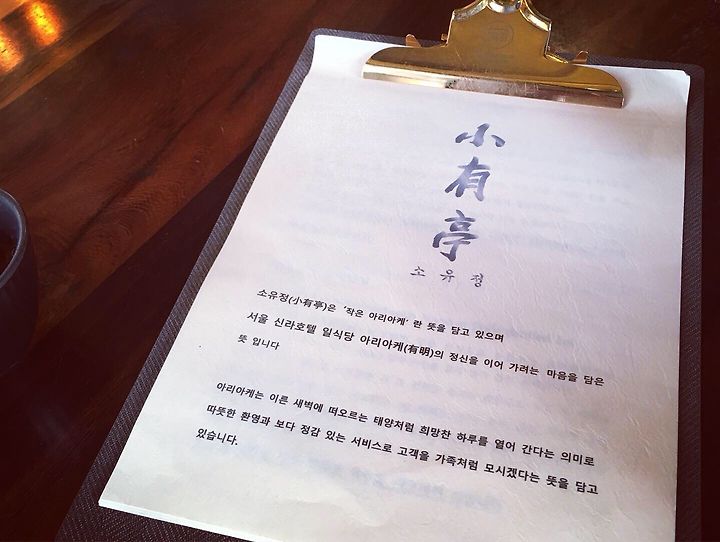 小
有
亭
소유정
소유정(小有亭)은 '작은 아리아케' 란 뜻을 담고 있으며
서울 신라호텔 일식당 아리아케(有明)의 정신을 이어 가려는 마음을 담은
뜻 입니다
아리아케는 이른 새벽에 떠오르는 태양처럼 희망찬 하루를 열어 간다는 의미로
따뜻한 환영과 보다 정감 있는 서비스로 고객을 가족처럼 모시겠다는 뜻을 담고
있습니다.